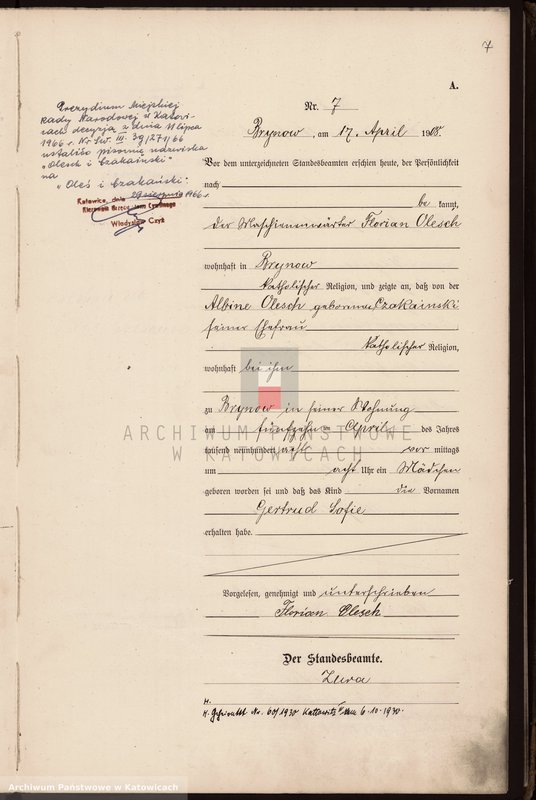 7
A.
Nr. 7
Brynow, am 17. April 1908.
Vor dem unterzeichneten Standesbeamten erschien heute, der Persönlichkeit
nach
be kannt,
der Maschienenwärter Florian Olesch
wohnhaft in Brynow
katholischer Religion, und zeigte an, daß von der
Albine Olesch geborenen Czakainski
seiner Ehefrau
katholischer Religion,
wohnhaft bei ihm
zu Brynow in seiner Wohnung
am fünfzehn ten April des Jahres
tausend neunhundert acht vor mittags
um acht Uhr ein Mädchen
geboren worden sei und daß das Kind die Vornamen
Gertrud Sofie
erhalten habe.
Vorgelesen, genehmigt und unterschrieben
Florian Olesch
Der Standesbeamte.
Zura
H.
H. Geheiratet No. 60/1930 Kattowitz am 6.10.1930.
Prezydium Miejskiej
Rady Narodowej w Katowi-
cach decyzją z dnia 11 lipca
1966 r. Nr Sw. III 39/271/66
ustaliło pisownię nazwiska
"Olesch i Czakainski"
na
"Oleś i Czakański".
Katowice, dnia 29 sierpnia 1966 r.
Kierownik Urzędu Stanu Cywilnego
Władysław Czyż
ARCHIWUM PAŃSTWOWE
W KATOWICACH
Archiwum Państwowe w Katowicach